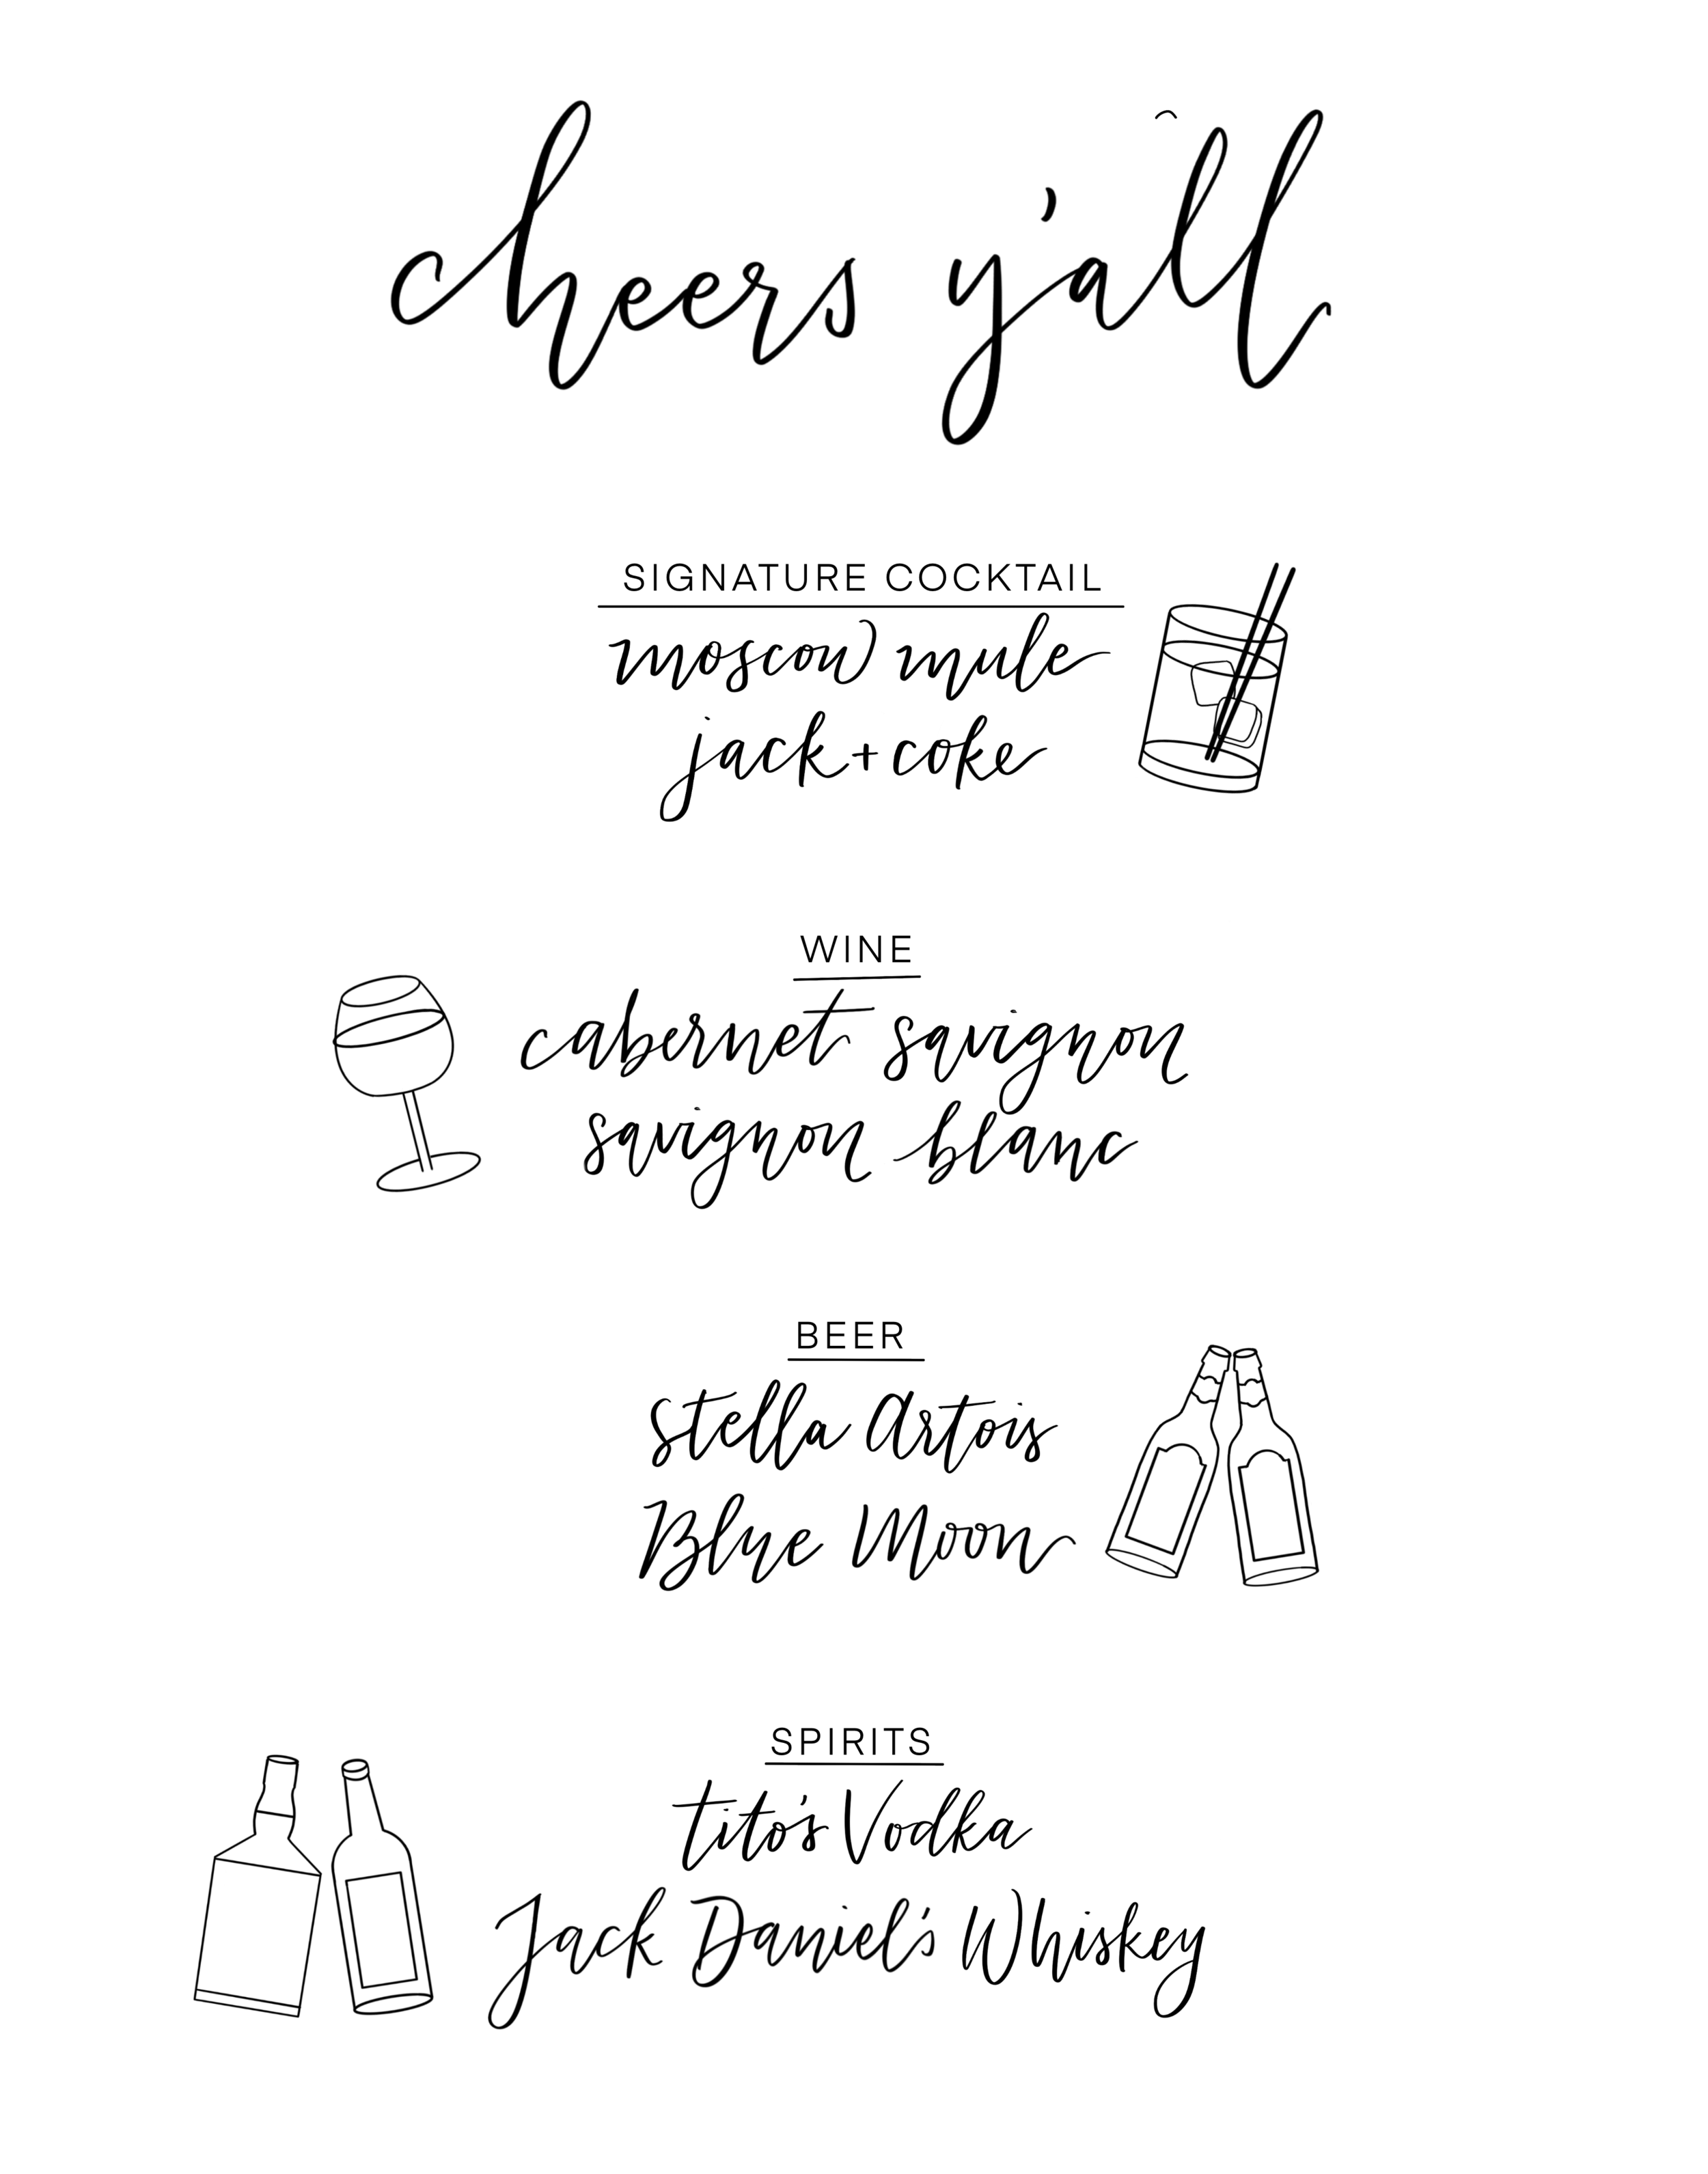 cheers y'all
SIGNATURE COCKTAIL
moscow mule
jack + coke
WINE
cabernet savignon
savignon blanc
BEER
Stella Artois
Blue Moon
SPIRITS
tito's Vodka
Jack Daniel's Whiskey